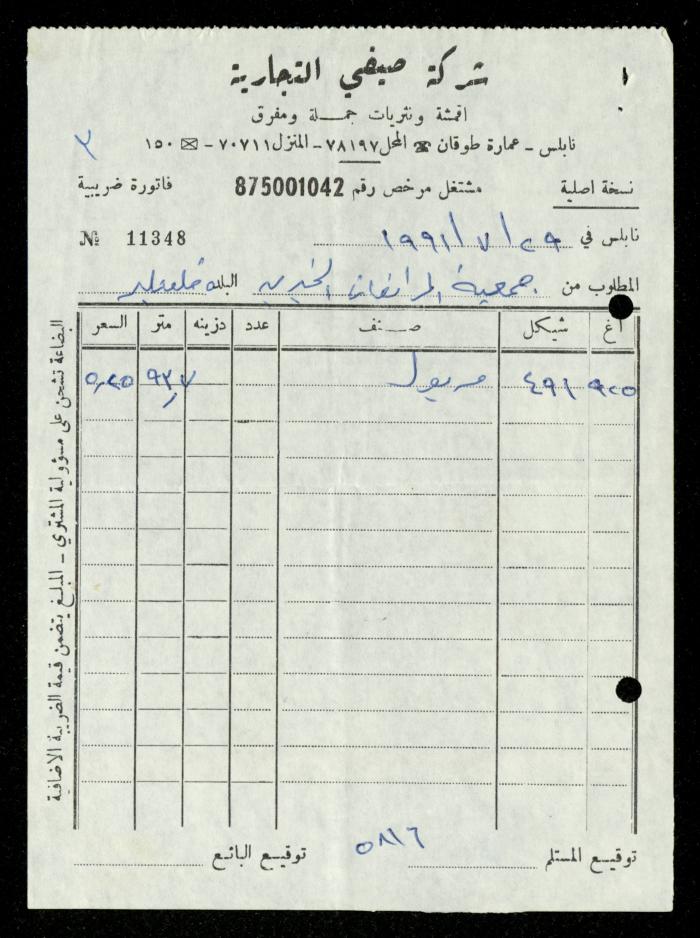 شركة صيفي التجارية
اقمشة ونثريات جملة ومفرق
نابلس - عمارة طوقان ☎ المحل ٧٨١٩٧ - المنزل ٧٠٧١١ - ✉ ١٥٠
٣
نسخة اصلية
مشتغل مرخص رقم 875001042 فاتورة ضريبية
نابلس في ٢٩/٧/١٩٩١ № 11348
المطلوب من جمعية المرابطات الخيرية البلد قلقيلية
اغ شيكل صنف عدد دزينه متر السعر
٩٢٥ ٤٩١ مريول ٩٣,٧ ٥,٢٥
البضاعة تشحن على مسؤولية المشتري - المبلغ يتضمن قيمة الضريبة الاضافية
توقيع المستلم توقيع البائع